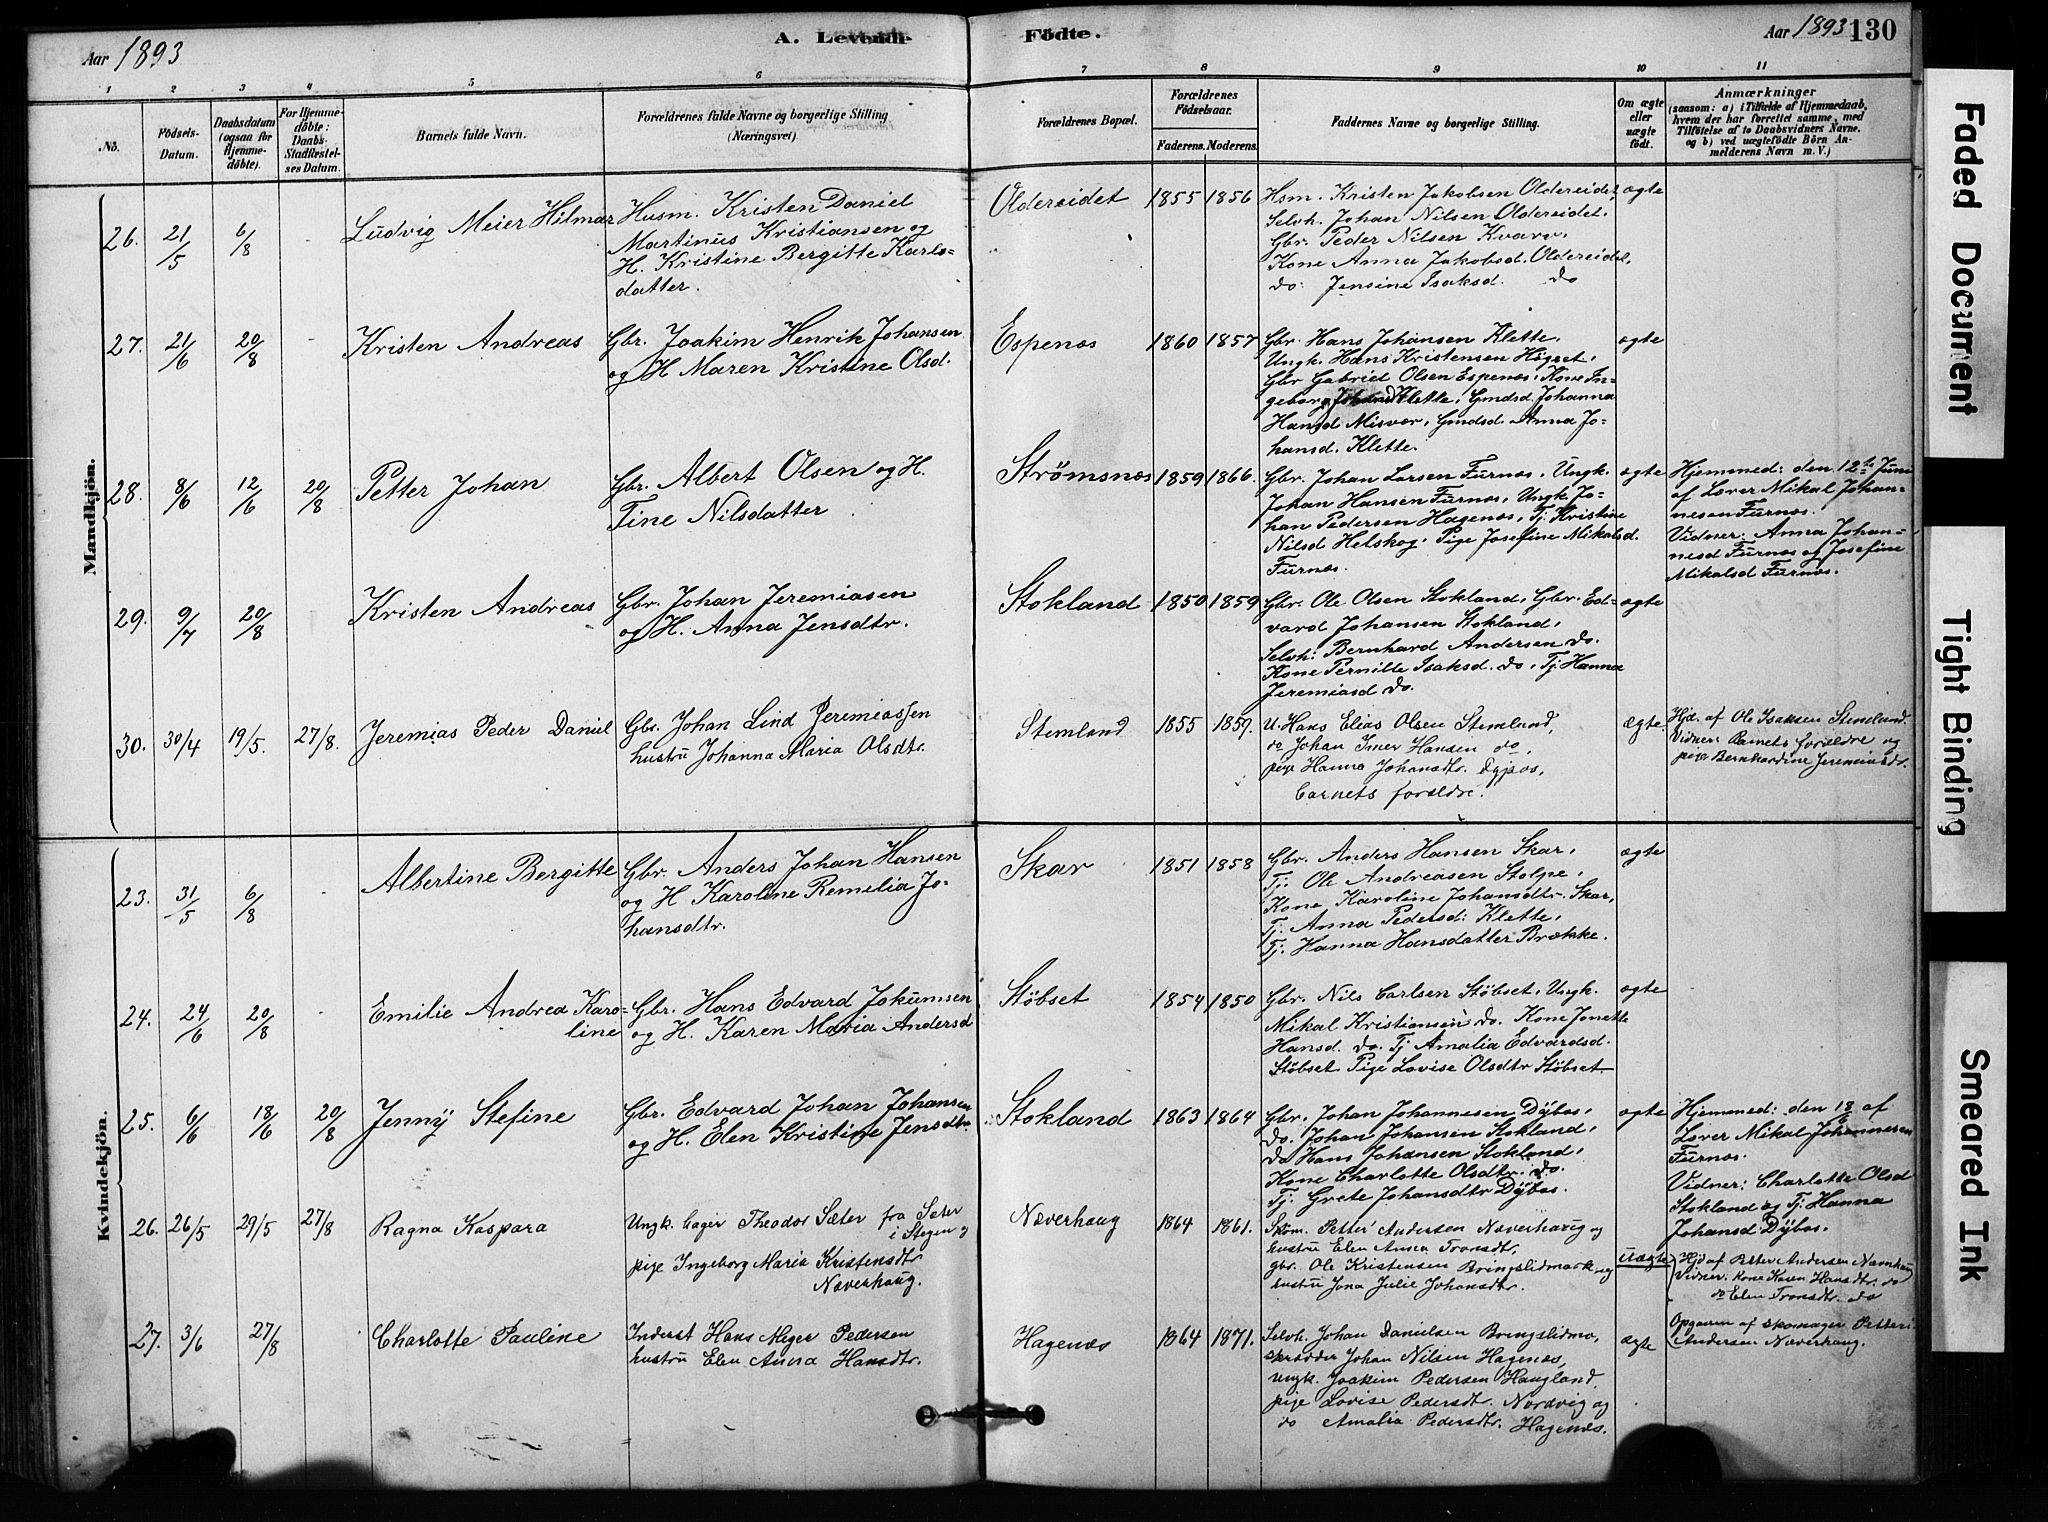 Aar 1893
A. Levende Födte.
Aar 1893 130
1 2 3 4 5 6 7 8 9 10 11
No.
Födsels-Datum.
Daabsdatum (ogsaa for Hjemme-döbte).
For Hjemme-döbte: Daabs-Stadfæstelses Datum.
Barnets fulde Navn.
Forældrenes fulde Navne og borgerlige Stilling (Næringsvei)
Forældrenes Bopæl.
Forældrenes Födselsaar.
Faderens. Moderens.
Faddernes Navne og borgerlige Stilling.
Om ægte eller uægte födt.
Anmærkninger
(saasom: a) i Tilfælde af Hjemmedaab, hvem der har forrettet samme, med Tilföielse af to Daabsvidners Navne, og b) ved uægtefödte Börn Anmelderens Navn m. V.)
Mandkjön.
26. 21/5 6/8 - Ludvig Meier Hilmar
Husm. Kristen Daniel
Martinus Kristiansen og
H. Kristine Bergitte Karls-
datter.
Oldereidet 1855 1856
Hsm. Kristen Jakobsen Oldereidet,
Selvh. Johan Nilsen Oldereidet.
Gbr. Peder Nilsen Kvarv.
Kone Anna Jakobsd. Oldereidet,
do: Jensine Isaksd. do
ægte
27. 21/6 20/8 - Kristen Andreas
Gbr. Joakim Henrik Johansen
og H Maren Kristine Olsd.
Espenæs 1860 1857
Gbr. Hans Johansen Klette.
Ungk. Hans Kristensen
Gbr Gabriel Olsen Espenæs, Kone In-
geborg Klette, Gmdsd Johanna
Hansd Misvær, Gmdsd. Anna Jo-
hansd. Klette.
ægte
28. 8/6 12/6 20/8 Petter Johan
Gbr. Albert Olsen og H.
Tine Nilsdatter
Strømsnæs 1859 1866.
Gbr. Johan Larsen Furnæs, Ungk.
Johan Hansen Furnæs, Ungk Jo-
han Pedersen Hagenæs, Tj. Kristine
Nilsd Helskog. Pige Josefine Mikalsd.
Furnæs.
ægte
Hjemmed: den 12te Juni
af Lærer Mikal Johan-
nesen Furnæs.
Vidner: Anna Johan-
nesd Furnæs og Josefine
Mikalsd Furnæs.
29. 9/7 20/8 Kristen Andreas
Gbr. Johan Jeremiasen
og H. Anna Jensdtr.
Stokland 1850 1859
Gbr. Ole Olsen Stokland, Gbr. Ed-
vard Johansen Stokland,
Selvh: Bernhard Andersen do.
Kone Pernille Isaksd. do, Tj. Hanna
Jeremiasd do.
ægte
30. 30/4 19/5. 27/8. Jeremias Peder Daniel
Gbr. Johan Lind Jeremiassen
hustru Johanna Maria Olsdtr.
Stemland 1855 1859.
U. Hans Elias Olsen Stemland,
do Johan Imer Hansen do,
pige Hanna Johansdtr. Dypos,
barnets forældre.
Ægte.
Hjd. af Ole Isaksen Stemland.
Vidner: Barnets forældre og
pige Bernhardine Jeremiasdr.
Kvindekjön.
23. 31/5 6/8 - Albertine Bergitte
Gbr. Anders Johan Hansen
og H Karoline Remelia Jo-
hansdtr.
Skar 1851 1858
Gbr. Anders Hansen Skar,
Tj. Ole Andreasen Stolpe,
Kone Karoline Johansdtr. Skar,
Tj. Anna Pedersd: Klette,
Tj. Hanna Hansdatter Brække.
ægte
24. 24/6 20/8 - Emilie Andrea Karo-
line
Gbr. Hans Edvard Jokumsen
og H. Karen Maria Andersd
Stöbset 1854 1850
Gbr. Nils Carlsen Stöbset, Ungk.
Mikal Kristiansen do. Kone Jonette
Hansd. do. Tj Amalia Edvardsd.
Stöbset Pige Lovise Olsdtr Stöbset.
ægte
25. 6/6 18/6 20/8 Jenny Stefine
Gbr. Edvard Johan Johansen
og H. Elen Kristine Jensdtr.
Stokland 1863 1864
Gbr. Johan Johannesen Dybos,
do. Johan Johansen Stokland,
do Hans Johansen Stokland,
Kone Charlotte Olsdtr. do.
Tj. Grete Johansdtr Dybos.
ægte
Hjemmed: den 18/6 af
Lærer Mikal Johannesen
Furnæs.
Vidner: Charlotte Olsd
Stokland og Tj. Hanna
Johansd: Dybos.
26. 26/5 29/5 27/8 Ragna Kaspara
Ungk. Hager Theodor Sæter fra Sæter
i Stegen og
pige Ingeborg Maria Kristensdtr
Næverhaug.
Næverhaug 1864 1861.
Skom. Petter Andersen Næverhaug og
hustru Elen Anna Tronsdtr,
gbr. Ole Kristensen Bringslidmark og
hustru Jona Julie Johansdtr.
Uægte
Hjd af Petter Andersen Næverhaug
Vidner: Kone Karen Hansdtr. do
do Elen Tronsdtr. do
Opgaven af skomager Petter
Andersen Næverhaug.
27. 3/6 27/8 Charlotte Pauline
Inderst Hans Meyer Pedersen
hustru Elen Anna Hansdtr.
Hagenæs 1864 1871.
Selvh. Johan Danielsen Bringslidmo,
skrædder Johan Nilsen Hagenæs,
ungk. Joakim Pedersen Haugland,
pige Lovise Pedersdtr. Nordvig og
do Amalia Pedersdtr. Hagenæs.
ægte
Faded Document
Tight Binding
Smeared Ink